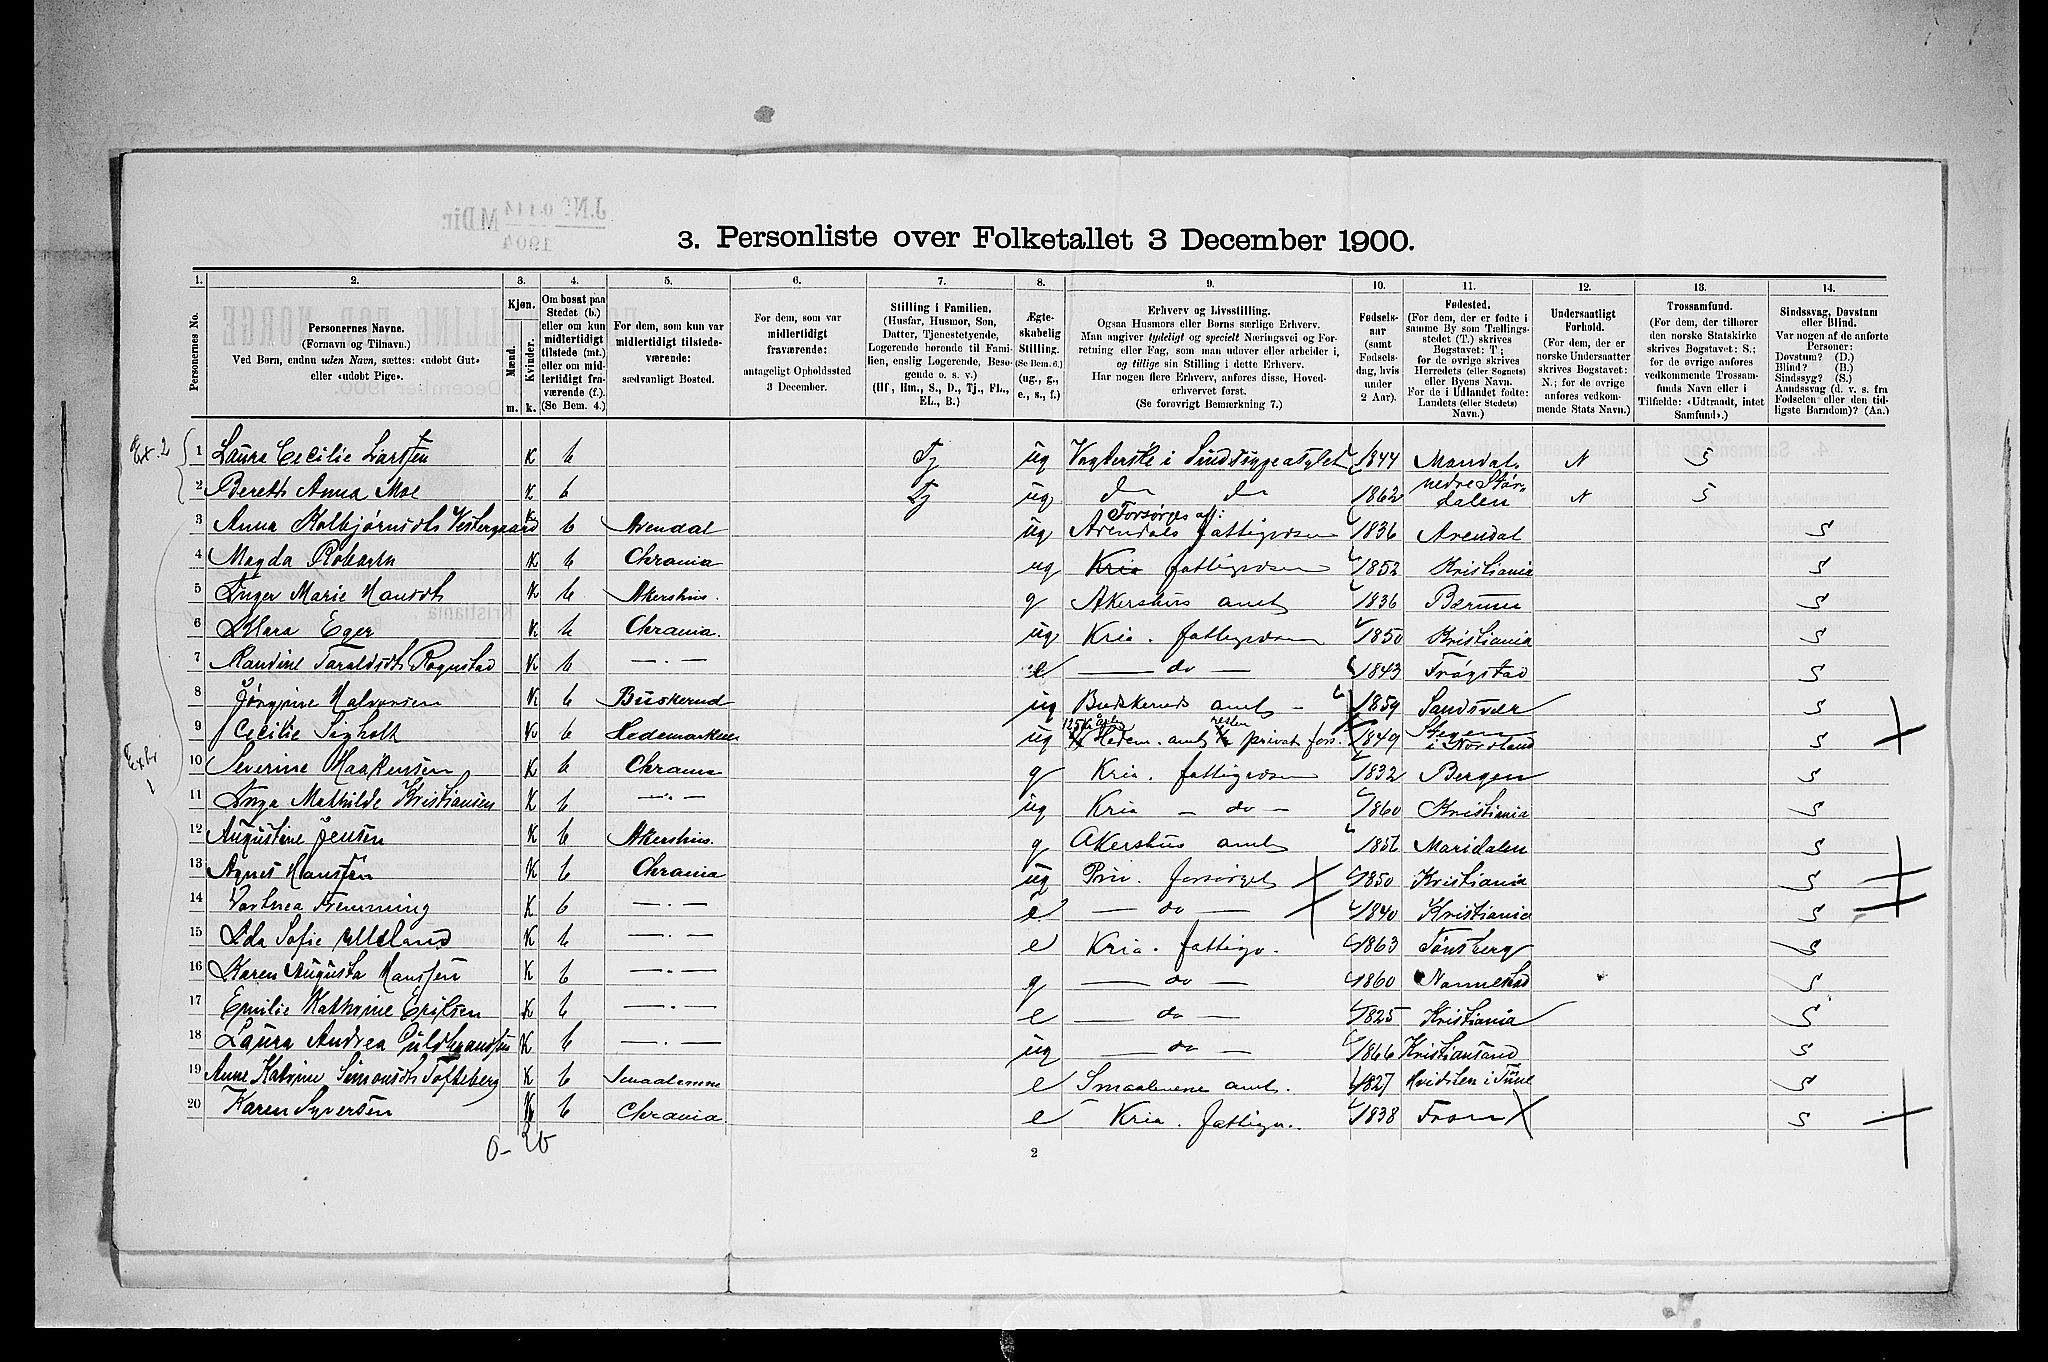 3. Personliste over Folketallet 3 December 1900.
1. 2. 3. 4. 5. 6. 7. 8. 9. 10. 11. 12. 13. 14.
Personernes No.
Personernes Navne.
(Fornavn og Tilnavn.)
Ved Børn, endnu uden Navn, sættes: «udøbt Gut»
eller «udøbt Pige».
Kjøn.
Mænd.
Kvinder.
m. k.
Om bosat paa
Stedet (b.)
eller om kun
midlertidigt
tilstede (mt.)
eller om mid-
lertidigt fra-
værende (f.).
(Se Bem. 4.)
For dem, som kun var
midlertidigt tilstede-
værende:
sædvanligt Bosted.
For dem, som var
midlertidigt
fraværende:
antageligt Opholdssted
3 December.
Stilling i Familien.
(Husfar, Husmor, Søn,
Datter, Tjenestetyende,
Logerende hørende til Fami-
lien, enslig Logerende, Besø-
gende o. s. v.)
(Hf., Hm., S., D., Tj., FL.,
EL., B.)
Ægte-
skabelig
Stilling.
(Se Bem. 6.)
(ug., g.,
e., s., f.)
Erhverv og Livsstilling.
Ogsaa Husmors eller Børns særlige Erhverv.
Man angiver tydeligt og specielt Næringsvei og For-
retning eller Fag, som man udøver eller arbeider i,
og tillige sin Stilling i dette Erhverv.
Har nogen flere Erhverv, anføres disse, Hoved-
erhvervet først.
(Se forøvrigt Bemærkning 7.)
Fødsels-
aar
(samt
Fødsels-
dag, hvis
under
2 Aar).
Fødested.
(For dem, der er fødte i
samme By som Tællings-
stedet (T.) skrives
Bogstavet: T;
for de øvrige skrives
Herredets (eller Sognets)
eller Byens Navn.
For de i Udlandet fødte:
Landets (eller Stedets)
Navn.)
Undersaatligt
Forhold.
(For dem, der er
norske Undersaatter
skrives Bogstavet:
N.; for de øvrige
anføres vedkom-
mende Stats Navn.)
Trossamfund.
(For dem, der tilhører
den norske Statskirke
skrives Bogstavet: S.;
for de øvrige anføres
vedkommende Trossam-
funds Navn eller i
Tilfælde: «Udtraadt, intet
Samfund».)
Sindssvag, Døvstum
eller Blind.
Var nogen af de anførte
Personer:
Døvstum? (D.)
Blind? (B.)
Sindssyg? (S.)
Aandssvag (d. v. s. fra
Fødselen eller den tid-
ligste Barndom)? (Aa.)
Ex. 2
1 Laura Cecilie Larssen K b Tj ug Vogterske i Sindssygeasylet 1844 Mandal N S
2 Bereth Anna Moe K b Tj ug do do 1862 nedre Stør-
dalen N S
3 Anna Kolbjørnsdtr Vestergaard K b Arendal ug Forsørges af:
Arendals fattigvæsen 1836 Arendal S
4 Magda K b Chrania ug Kria fattigvæsen 1852 Kristiania S
5 Inger Marie Hansdtr K b Akershus. g Akershus amt 1836 Bærum S
6 Klara Eger K b Chrania. ug Kria. fattigvæsen 1850 Kristiania S
7 Randine Taraldsdtr Rognstad K b — . — e — do — 1843 Trøgstad S
8 Jørgine Halvorsen K b Buskerud ug Buskeruds amt 1859 Sandsvær S
9 Cecilie Sigholt K b Hedemarken ug Hedem. amt resten privat fors. 1849 Stegen
i Nordland S
10 Severine Haakensen K b Chrania g Kria. fattigvæsen 1832 Bergen S
11 Inga Mathilde Kristiansen K b — . — ug Kria — do — 1860 Kristiania S
12 Augustine Jensen K b Akershus. g Akershus amt 1856 Maridalen S
13 Agnes Hansen K b Chrania ug Priv. forsørget 1850 Kristiania S
14 Flemming K b — . — e — do — 1840 Kristiania S
15 Ida Sofie K b — . — e Kria. fattigv. 1863 Tønsberg S
16 Karen Augusta Hanssen K b — . — g — do — 1860 Nannestad S
17 Emilie Kathrine Eriksen K b — . — e — do — 1825 Kristiania S
18 Laura Andrea Guldbrandsen K b — . — ug — do — 1866 Kristiansand S
19 Anne Katrine Simonsdtr Tofteberg K b Smaalenene e Smaalenene amt. 1827 Hvidsten i Tune S
20 Karen Syversen K b Chrania. e Kria. fattigv. 1838 Fron S
0 - 20
2